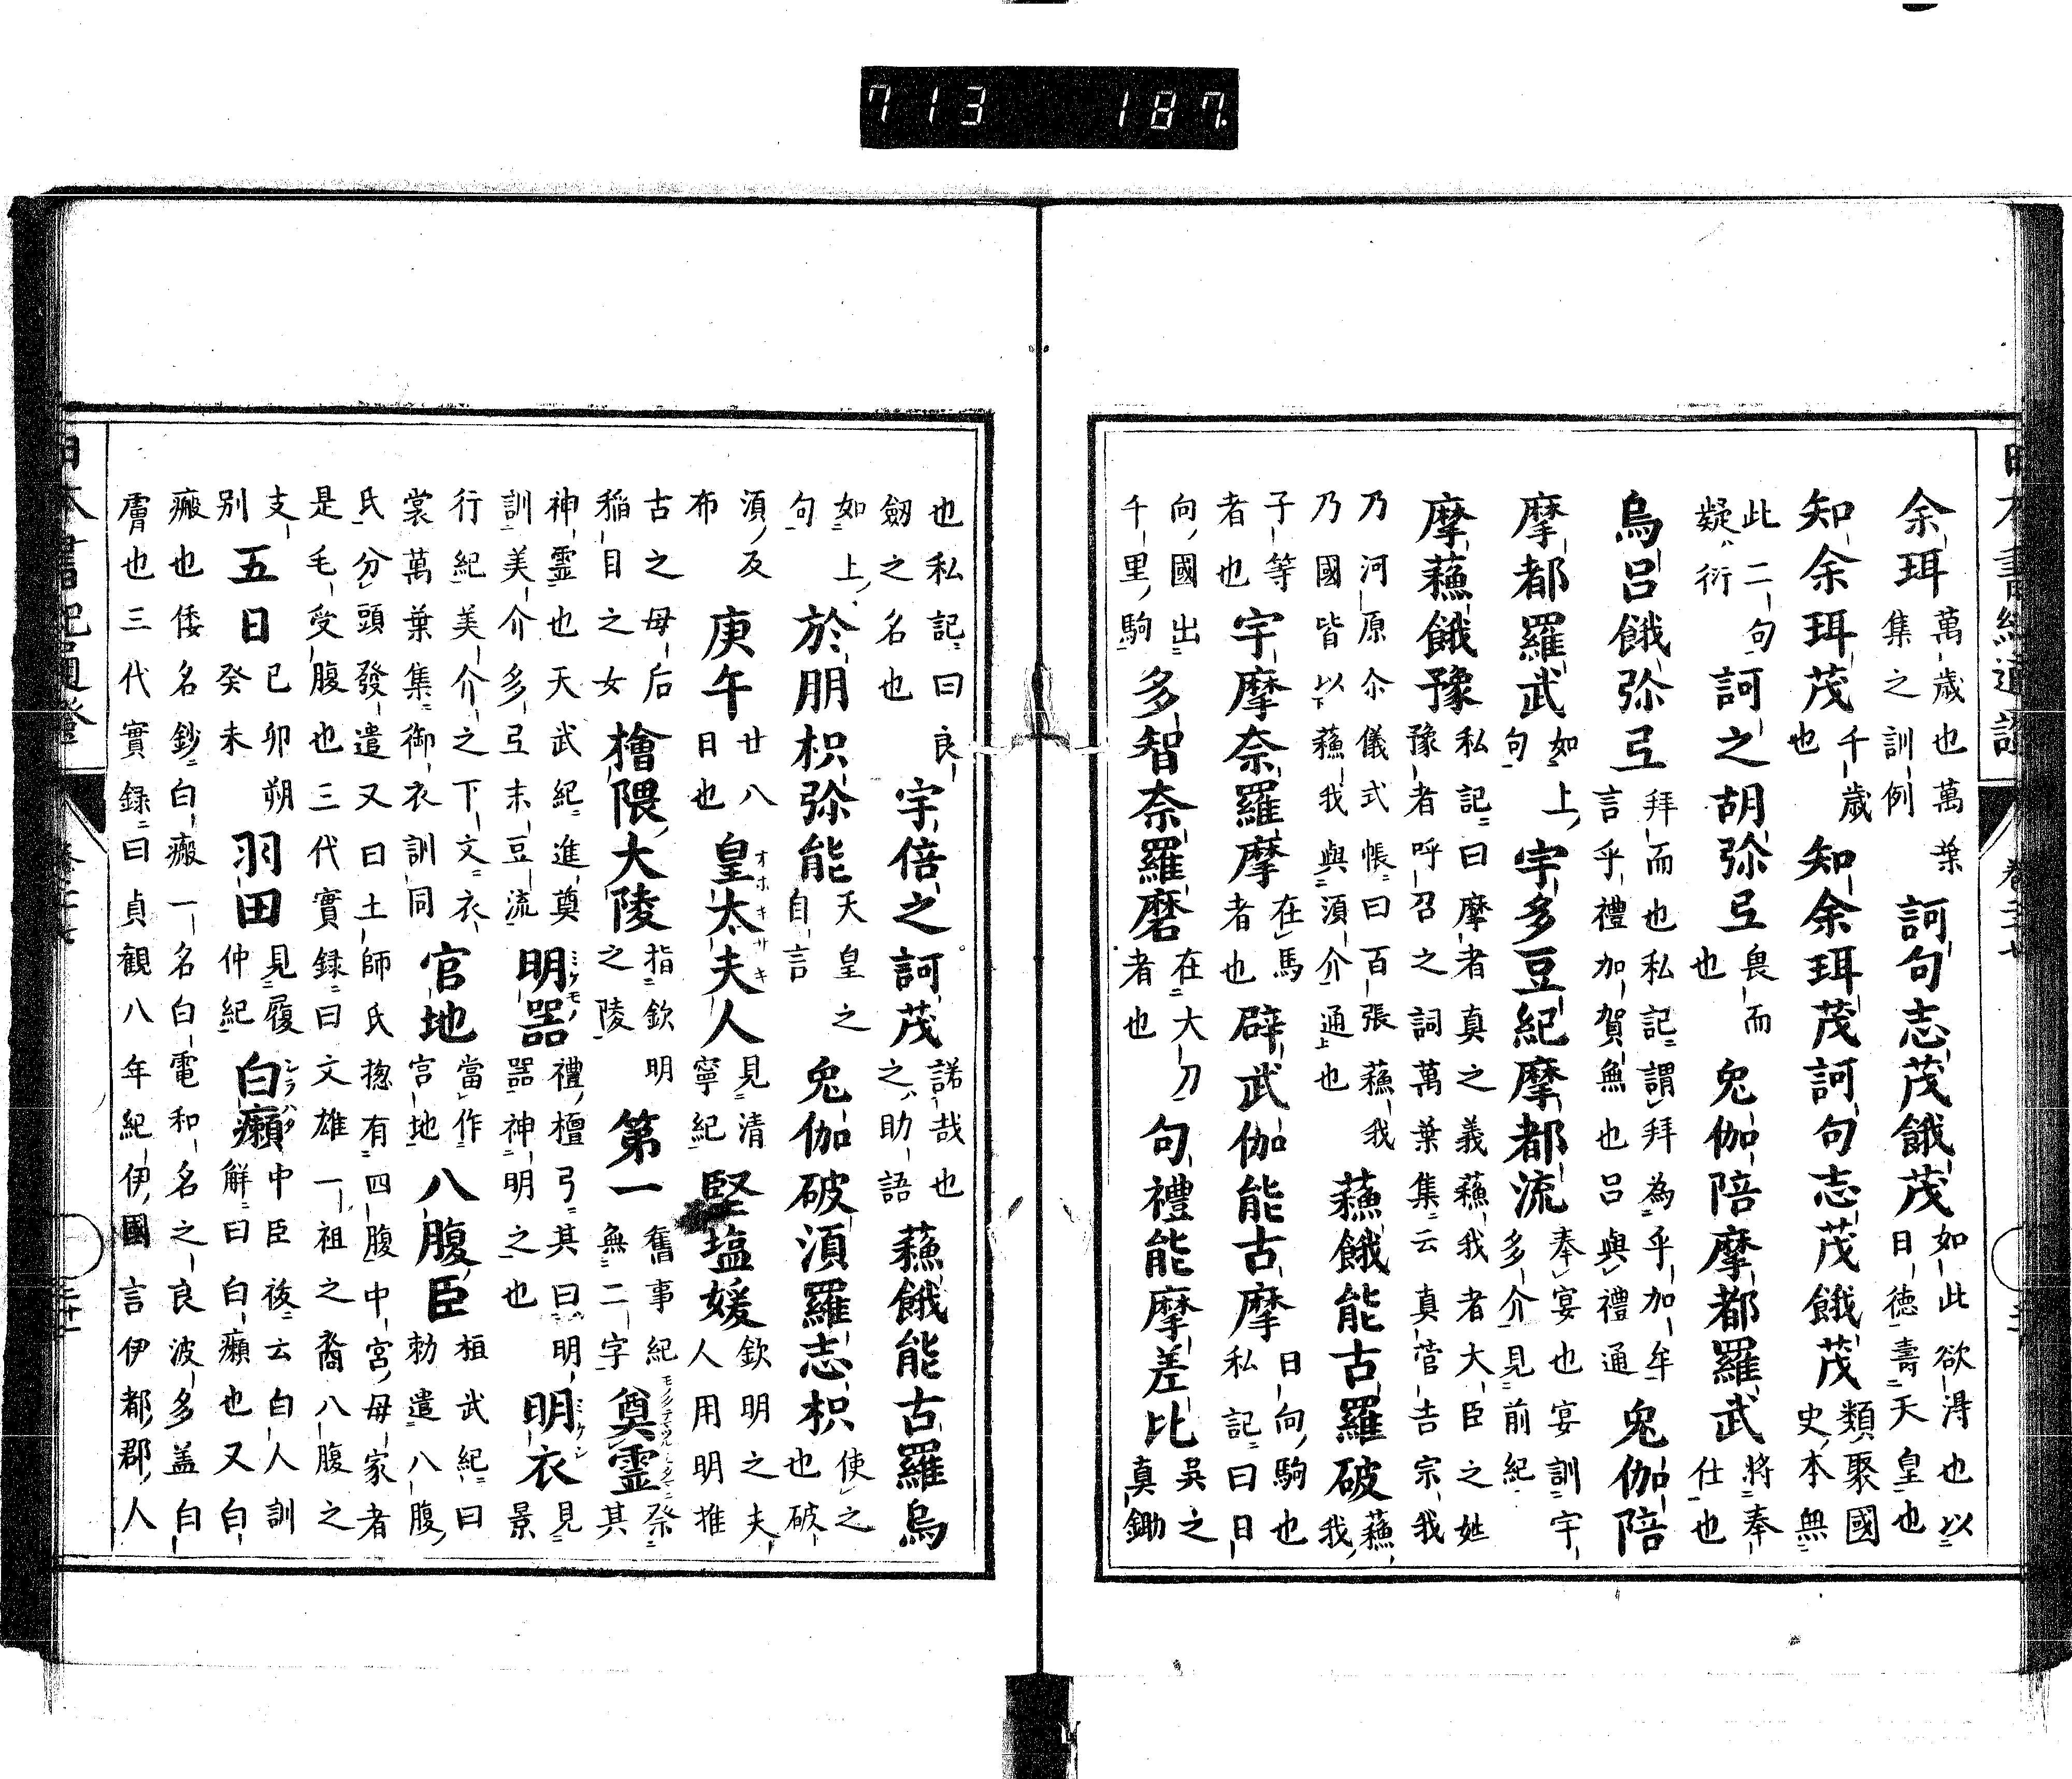 余珥萬歲也萬葉集之訓例訶句志茂餓茂如此欲得也以日徳壽天皇也
知余珥茂千歲也知余珥茂訶句志茂餓茂類聚國史本無
此二句疑衍訶之胡弥弖畏而也兔伽陪摩都羅武將奉仕也
烏呂餓弥弖拜而也私記謂拜為乎加牟言乎禮加賀無也呂與禮通兔伽陪
摩都羅武如上句宇多豆紀摩都流奉宴也宴訓宇多介見前紀
摩蘓餓豫私記曰摩者真之義蘓我者大臣之姓豫者呼召之詞萬葉集云真菅吉宗我
乃河原尒儀式帳曰百張蘓我乃國皆以下蘓我與湏介通上也蘓餓能古羅破蘓我
子等者也宇摩奈羅摩在馬者也辟武伽能古摩日向駒也私記曰日
向國出千里駒多智奈羅磨在大刀者也句禮能摩差比吳之真鋤
也私記曰良劔之名也宇倍之訶茂諾哉也之助語蘓餓能古羅烏
如上句於朋枳弥能天皇之自言兔伽破湏羅志枳使之也破
湏反布庚午廿八日也皇太夫人オホキサキ見清寧紀堅塩媛欽明之夫人用明推
古之母后稲目之女檜隈大陵指欽明之陵第一舊事紀無二字奠靈祭其
神靈也天武紀進奠訓美介多弖末豆流明器ミケモノ禮檀弓其曰明器神明之也明衣ミケシ見景
行紀美介之下文衣裳萬葉集御衣訓同官地當作宮地八腹臣桓武紀曰勅遣八腹
氏分頭發遣又曰土師氏揔有四腹中宮母家者是毛受腹也三代實録曰文雄一祖之裔八腹之
支別五日已卯朔癸未羽田見履仲紀白癩シラハタ中臣後云白人訓解曰白癩也又白
瘢也倭名鈔白瘢一名白電和名之良波多蓋白膚也三代實録曰貞観八年紀伊國言伊都郡人
713 187